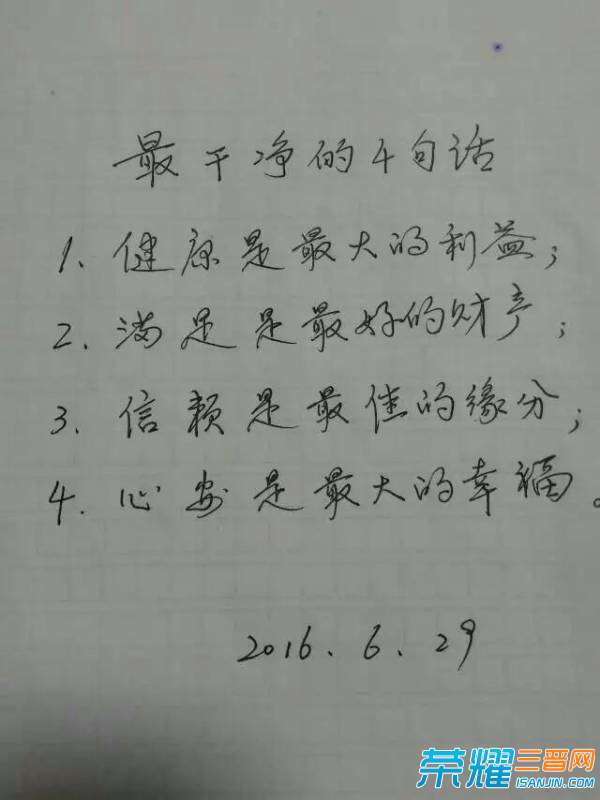 最干净的4句话
1. 健康是最大的利益;
2. 满足是最好的财产;
3. 信赖是最佳的缘分;
4. 心安是最大的幸福。
2016.6.29
荣耀三晋网
ISANJIN.COM